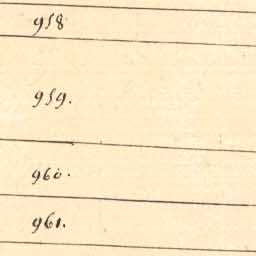 958
959.
960.
961.